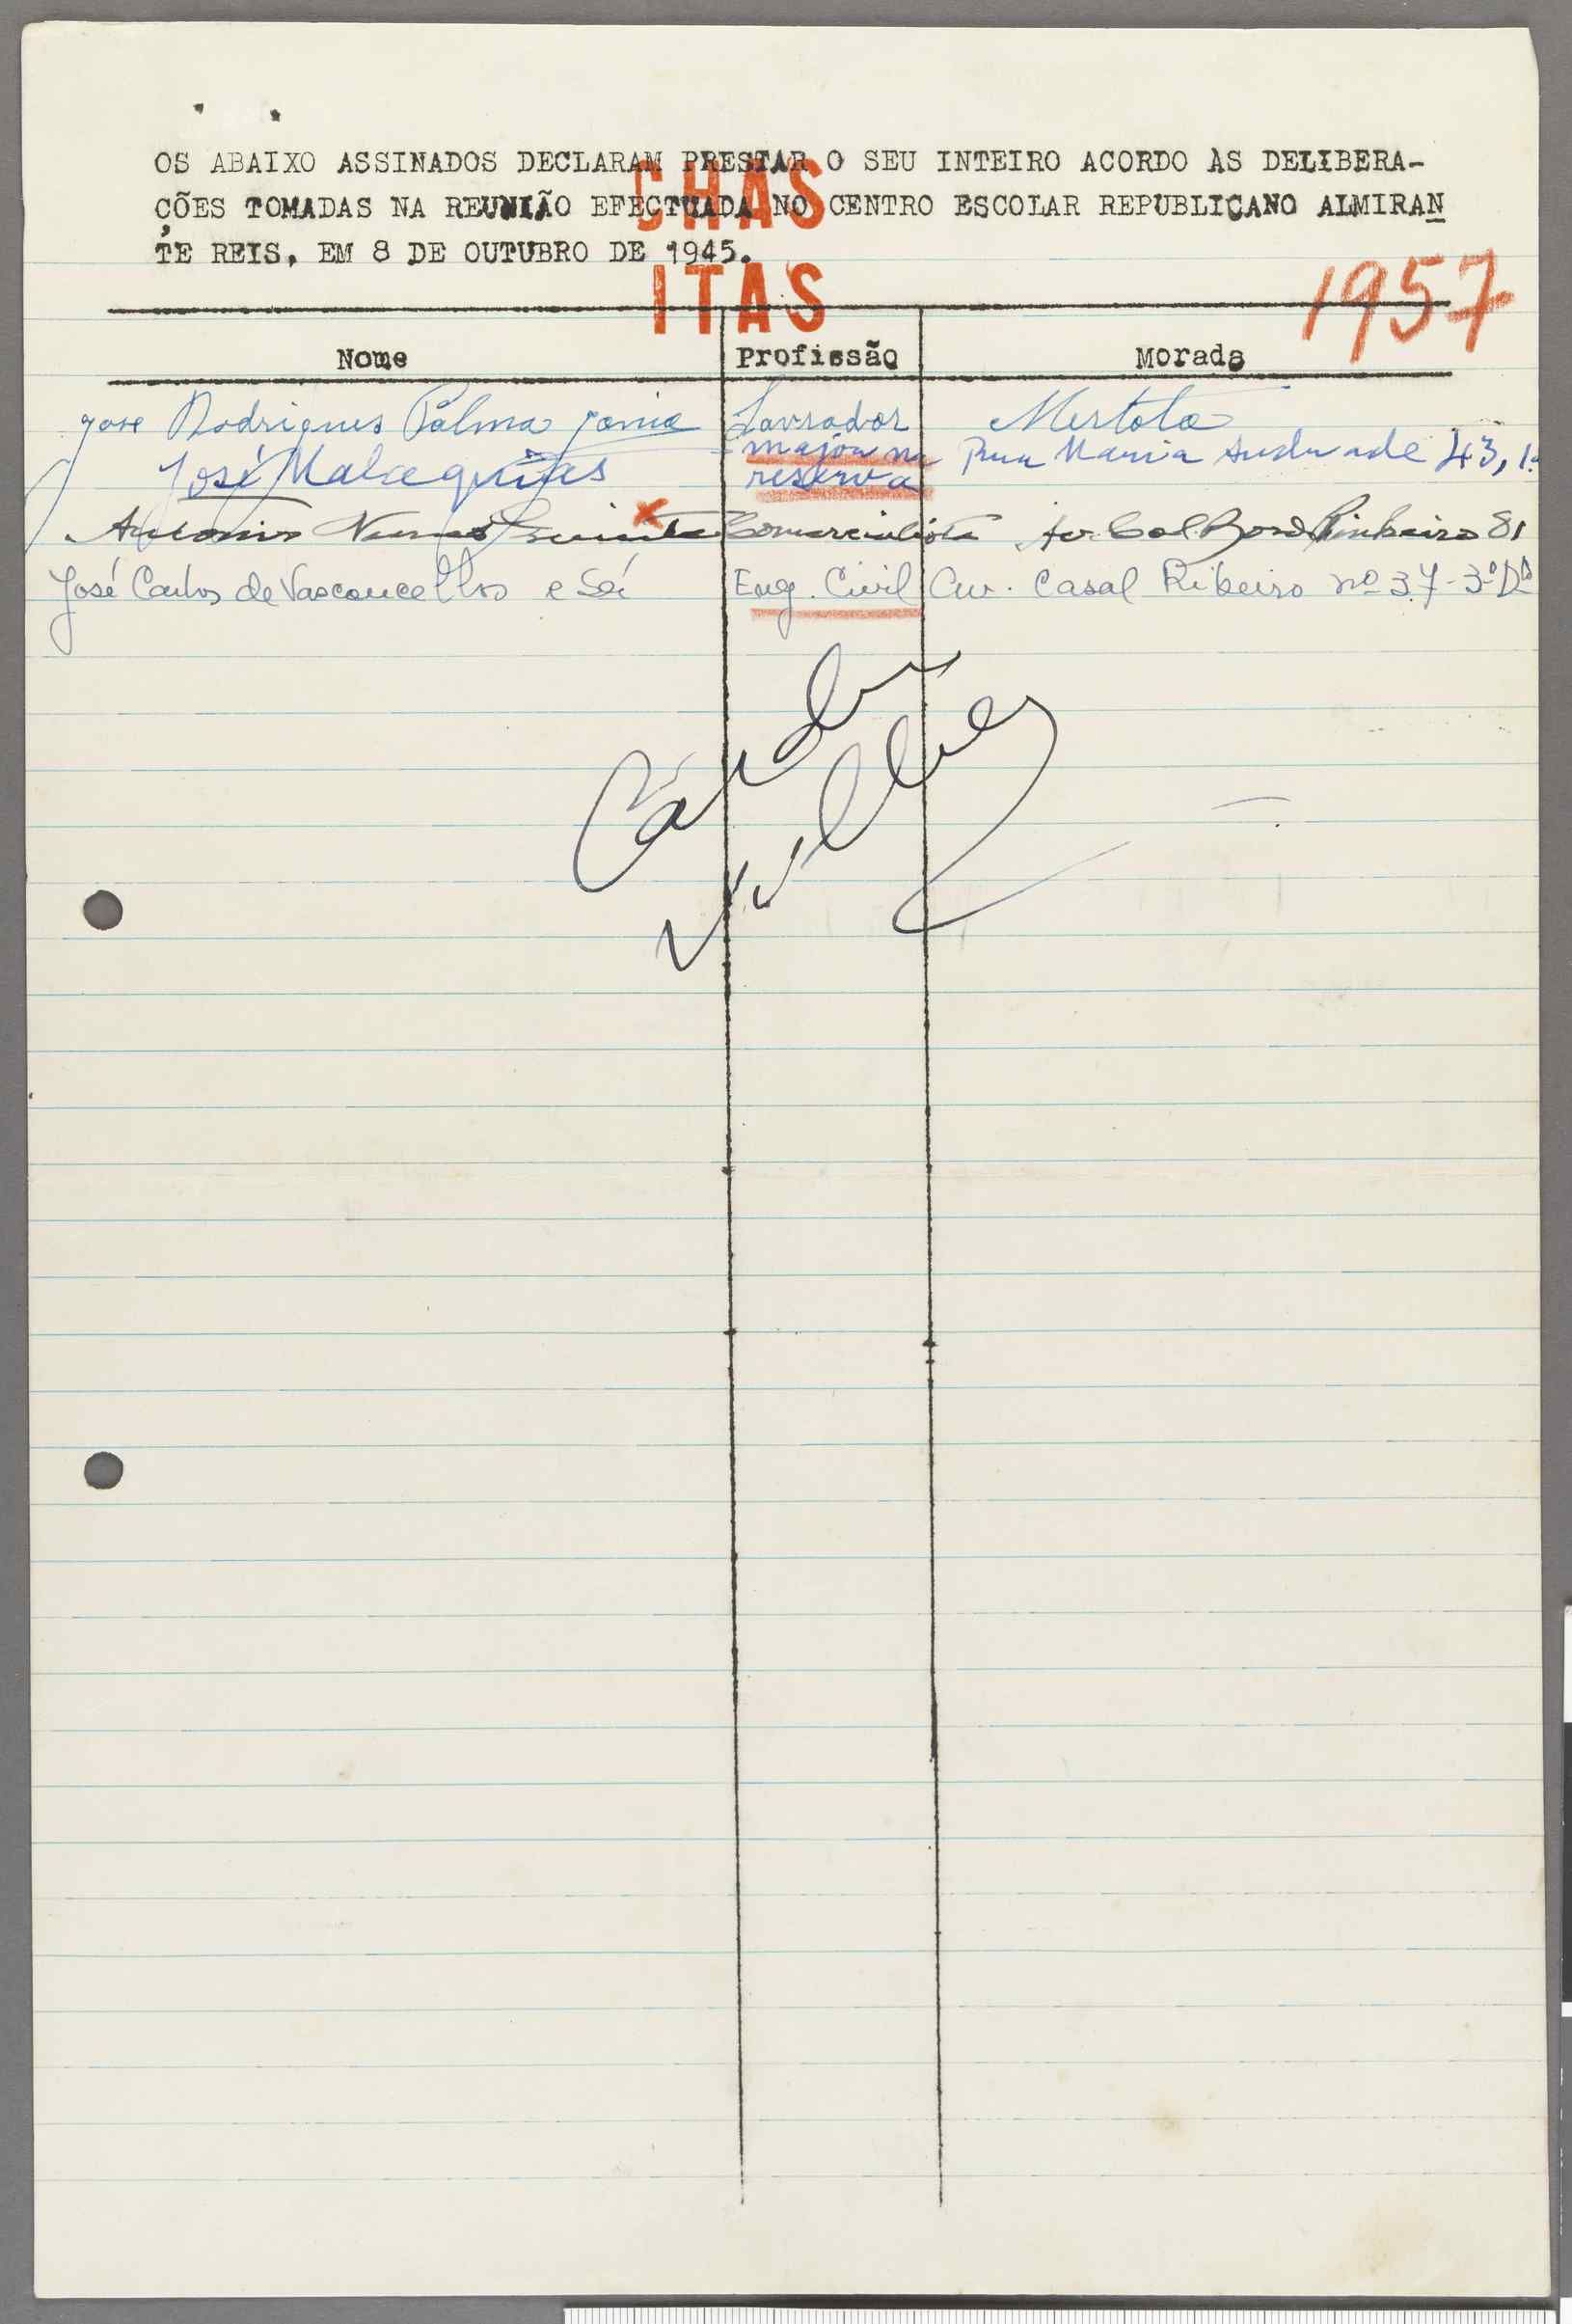 OS ABAIXO ASSINADOS DECLARAM PRESTAR O SEU INTEIRO ACORDO ÀS DELIBERA-
ÇÕES TOMADAS NA REUNIÃO EFECTUADA NO CENTRO ESCOLAR REPUBLICANO ALMIRAN
TE REIS, EM 8 DE OUTUBRO DE 1945.
CHAS
ITAS
1957
Nome Profissão Morada
Jose Rodrigues Palma Lavrador Mertola
José Malaquias major na reserva Rua Maria Andrade 43, 1º
Antonio Nunes Comercialista Av. Col Bord Pinheiro 81
José Carlos de Vasconcellos e Sá Eng. Civil Av. Casal Ribeiro nº 37-3º Dº